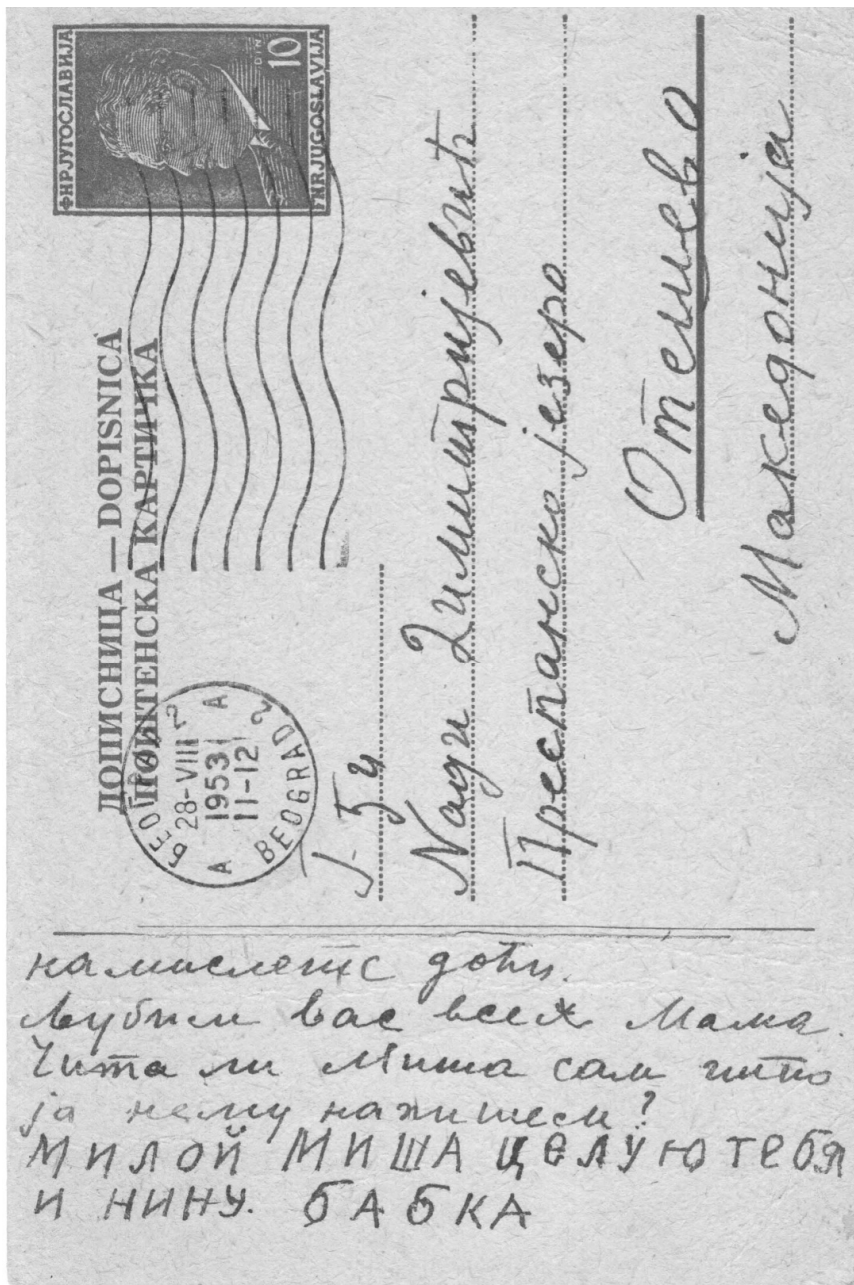 ФНРЈУГОСЛАВИЈА
10
DIN
FNRJUGOSLAVIJA
ДОПИСНИЦА — DOPISNICA
ПОШТЕНСКА КАРТИЧКА
БЕОГРАД 2
28-VIII
A 1953 A
11-12
BEOGRAD 2
Нађи Димитријевић
Преспанско језеро
Отешево
Македонија
намислете доћи.
Љубим вас всех Мама.
Чита ли Миша сам што
ја нему напишем?
МИЛОЙ МИША ЦЕЛУЮ ТЕБЯ
И НИНУ. БАБКА